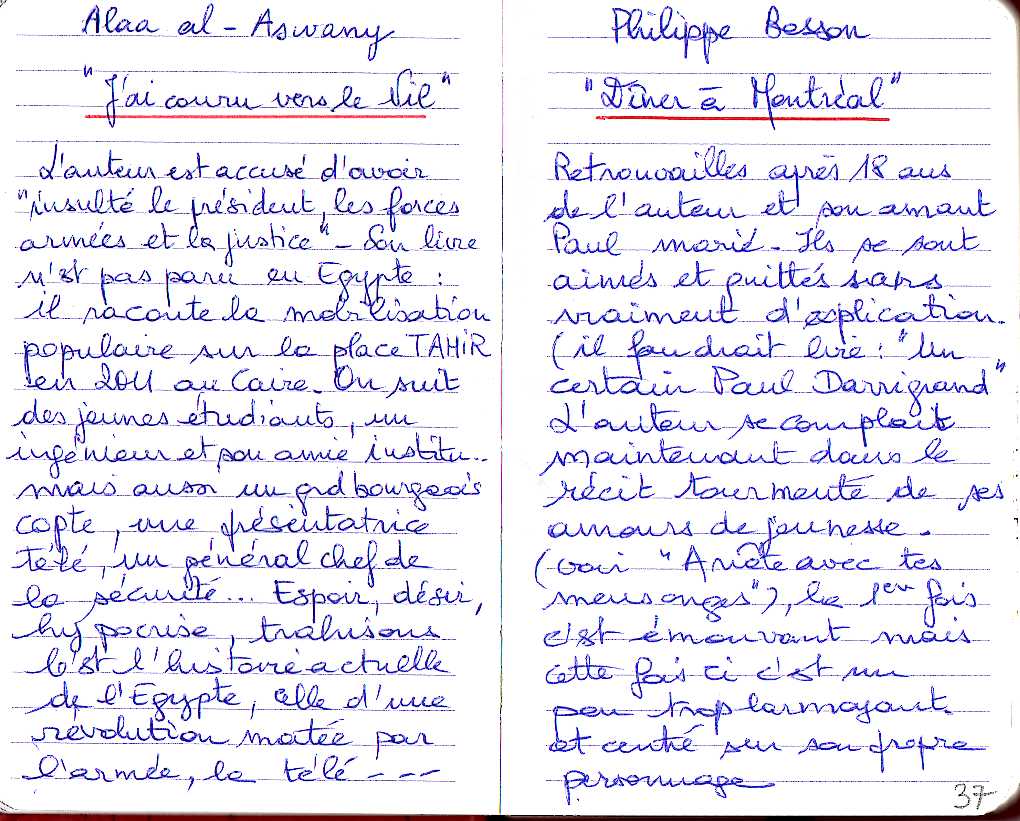 Alaa al-Aswany
"J'ai couru vers le Nil"
L'auteur est accusé d'avoir
"insulté le président, les forces
armées et la justice" - Son livre
n'est pas paru en Egypte :
il raconte la mobilisation
populaire sur la place TAHiR
en 2011 au Caire. On suit
des jeunes étudiants, un
ingénieur et son amie institu..
mais aussi un grd bourgeois
copte, une présentatrice
télé, un général chef de
la sécurité... Espoir, désir,
hypocrisie, trahisons
C'est l'histoire actuelle
de l'Egypte, celle d'une
révolution matée par
l'armée, la télé ---
Philippe Besson
"Dîner à Montréal"
Retrouvailles après 18 ans
de l'auteur et son amant
Paul marié - Ils se sont
aimés et quittés sans
vraiment d'explication.
(il faudrait lire : "Un
certain Paul Darrigrand"
L'auteur se complait
maintenant dans le
récit tourmenté de ses
amours de jeunesse.
(voir "Arrête avec tes
mensonges"), la 1ère fois
c'est émouvant mais
cette fois ci c'est un
peu trop larmoyant.
et centré sur son propre
personnage
37